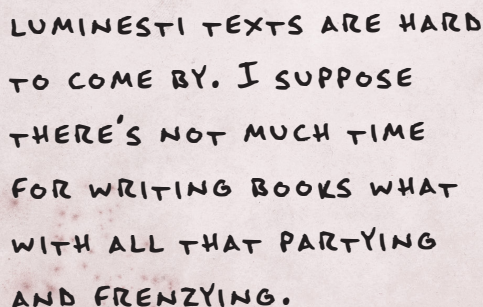 LUMINESTI TEXTS ARE HARD
TO COME BY. I SUPPOSE
THERE'S NOT MUCH TIME
FOR WRITING BOOKS WHAT
WITH ALL THAT PARTYING
AND FRENZYING.